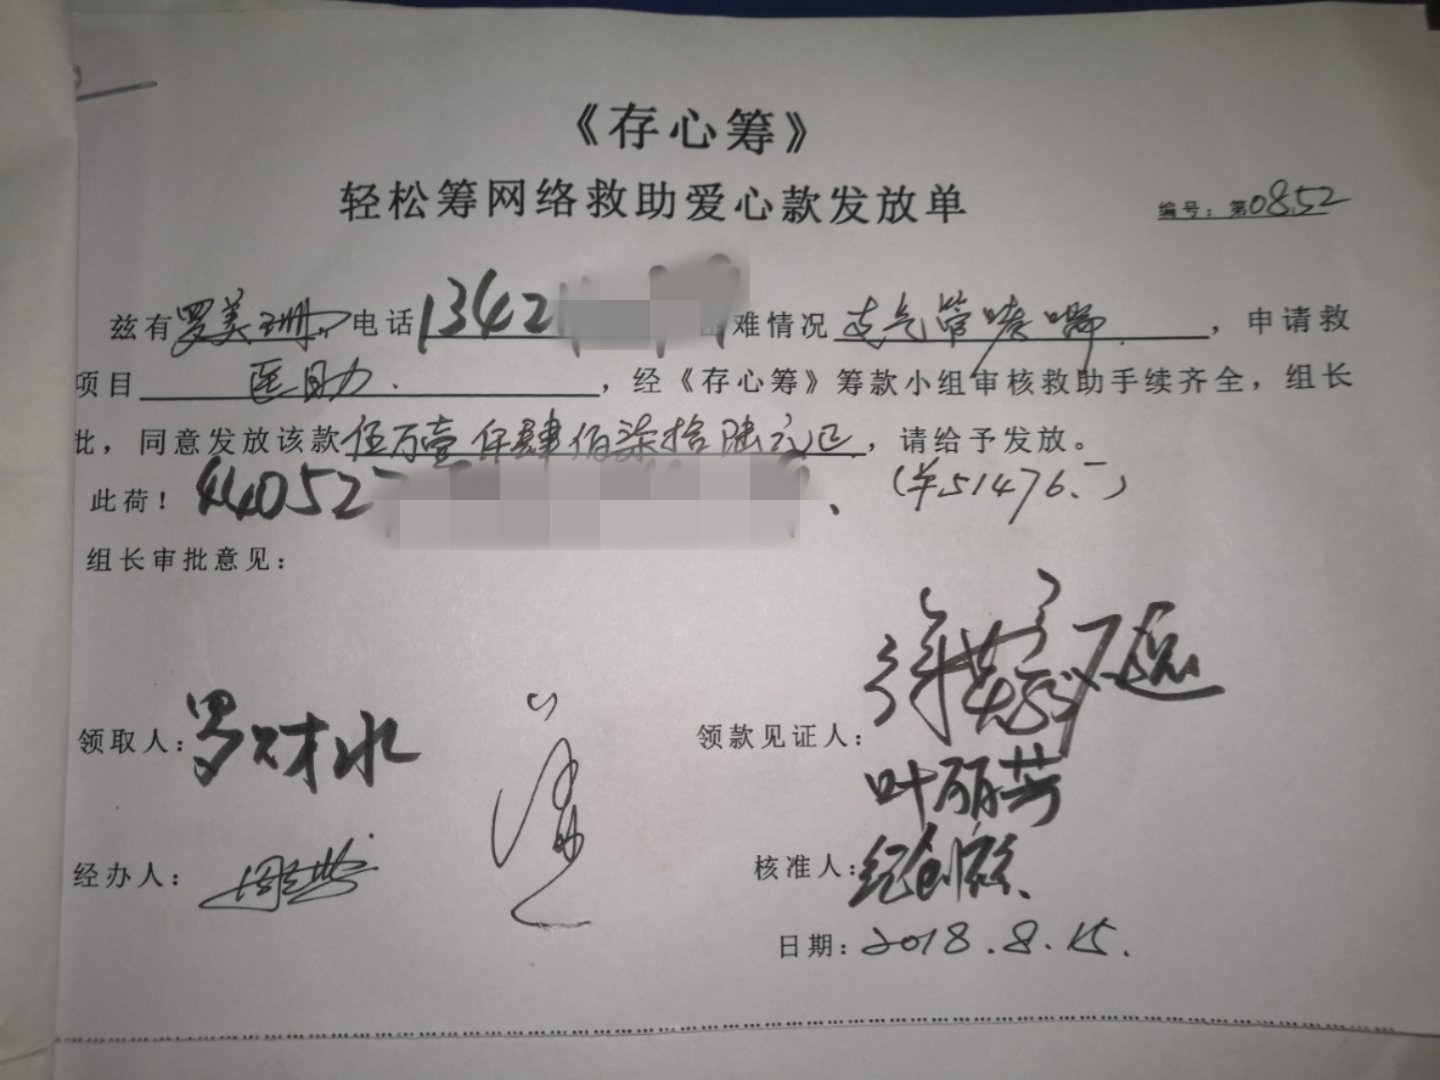 《存心筹》
轻松筹网络救助爱心款发放单
编号：第0852
兹有罗美珊，电话13421 难情况支气管哮喘，申请救
项目医助．，经《存心筹》筹款小组审核救助手续齐全，组长
此，同意发放该款伍万壹仟肆佰柒拾陆元正，请给予发放。
此荷！440527、（￥51476.-）
组长审批意见：
领取人：罗财水 领款见证人：
叶丽芳
经办人： 核准人：
日期：2018.8.15.